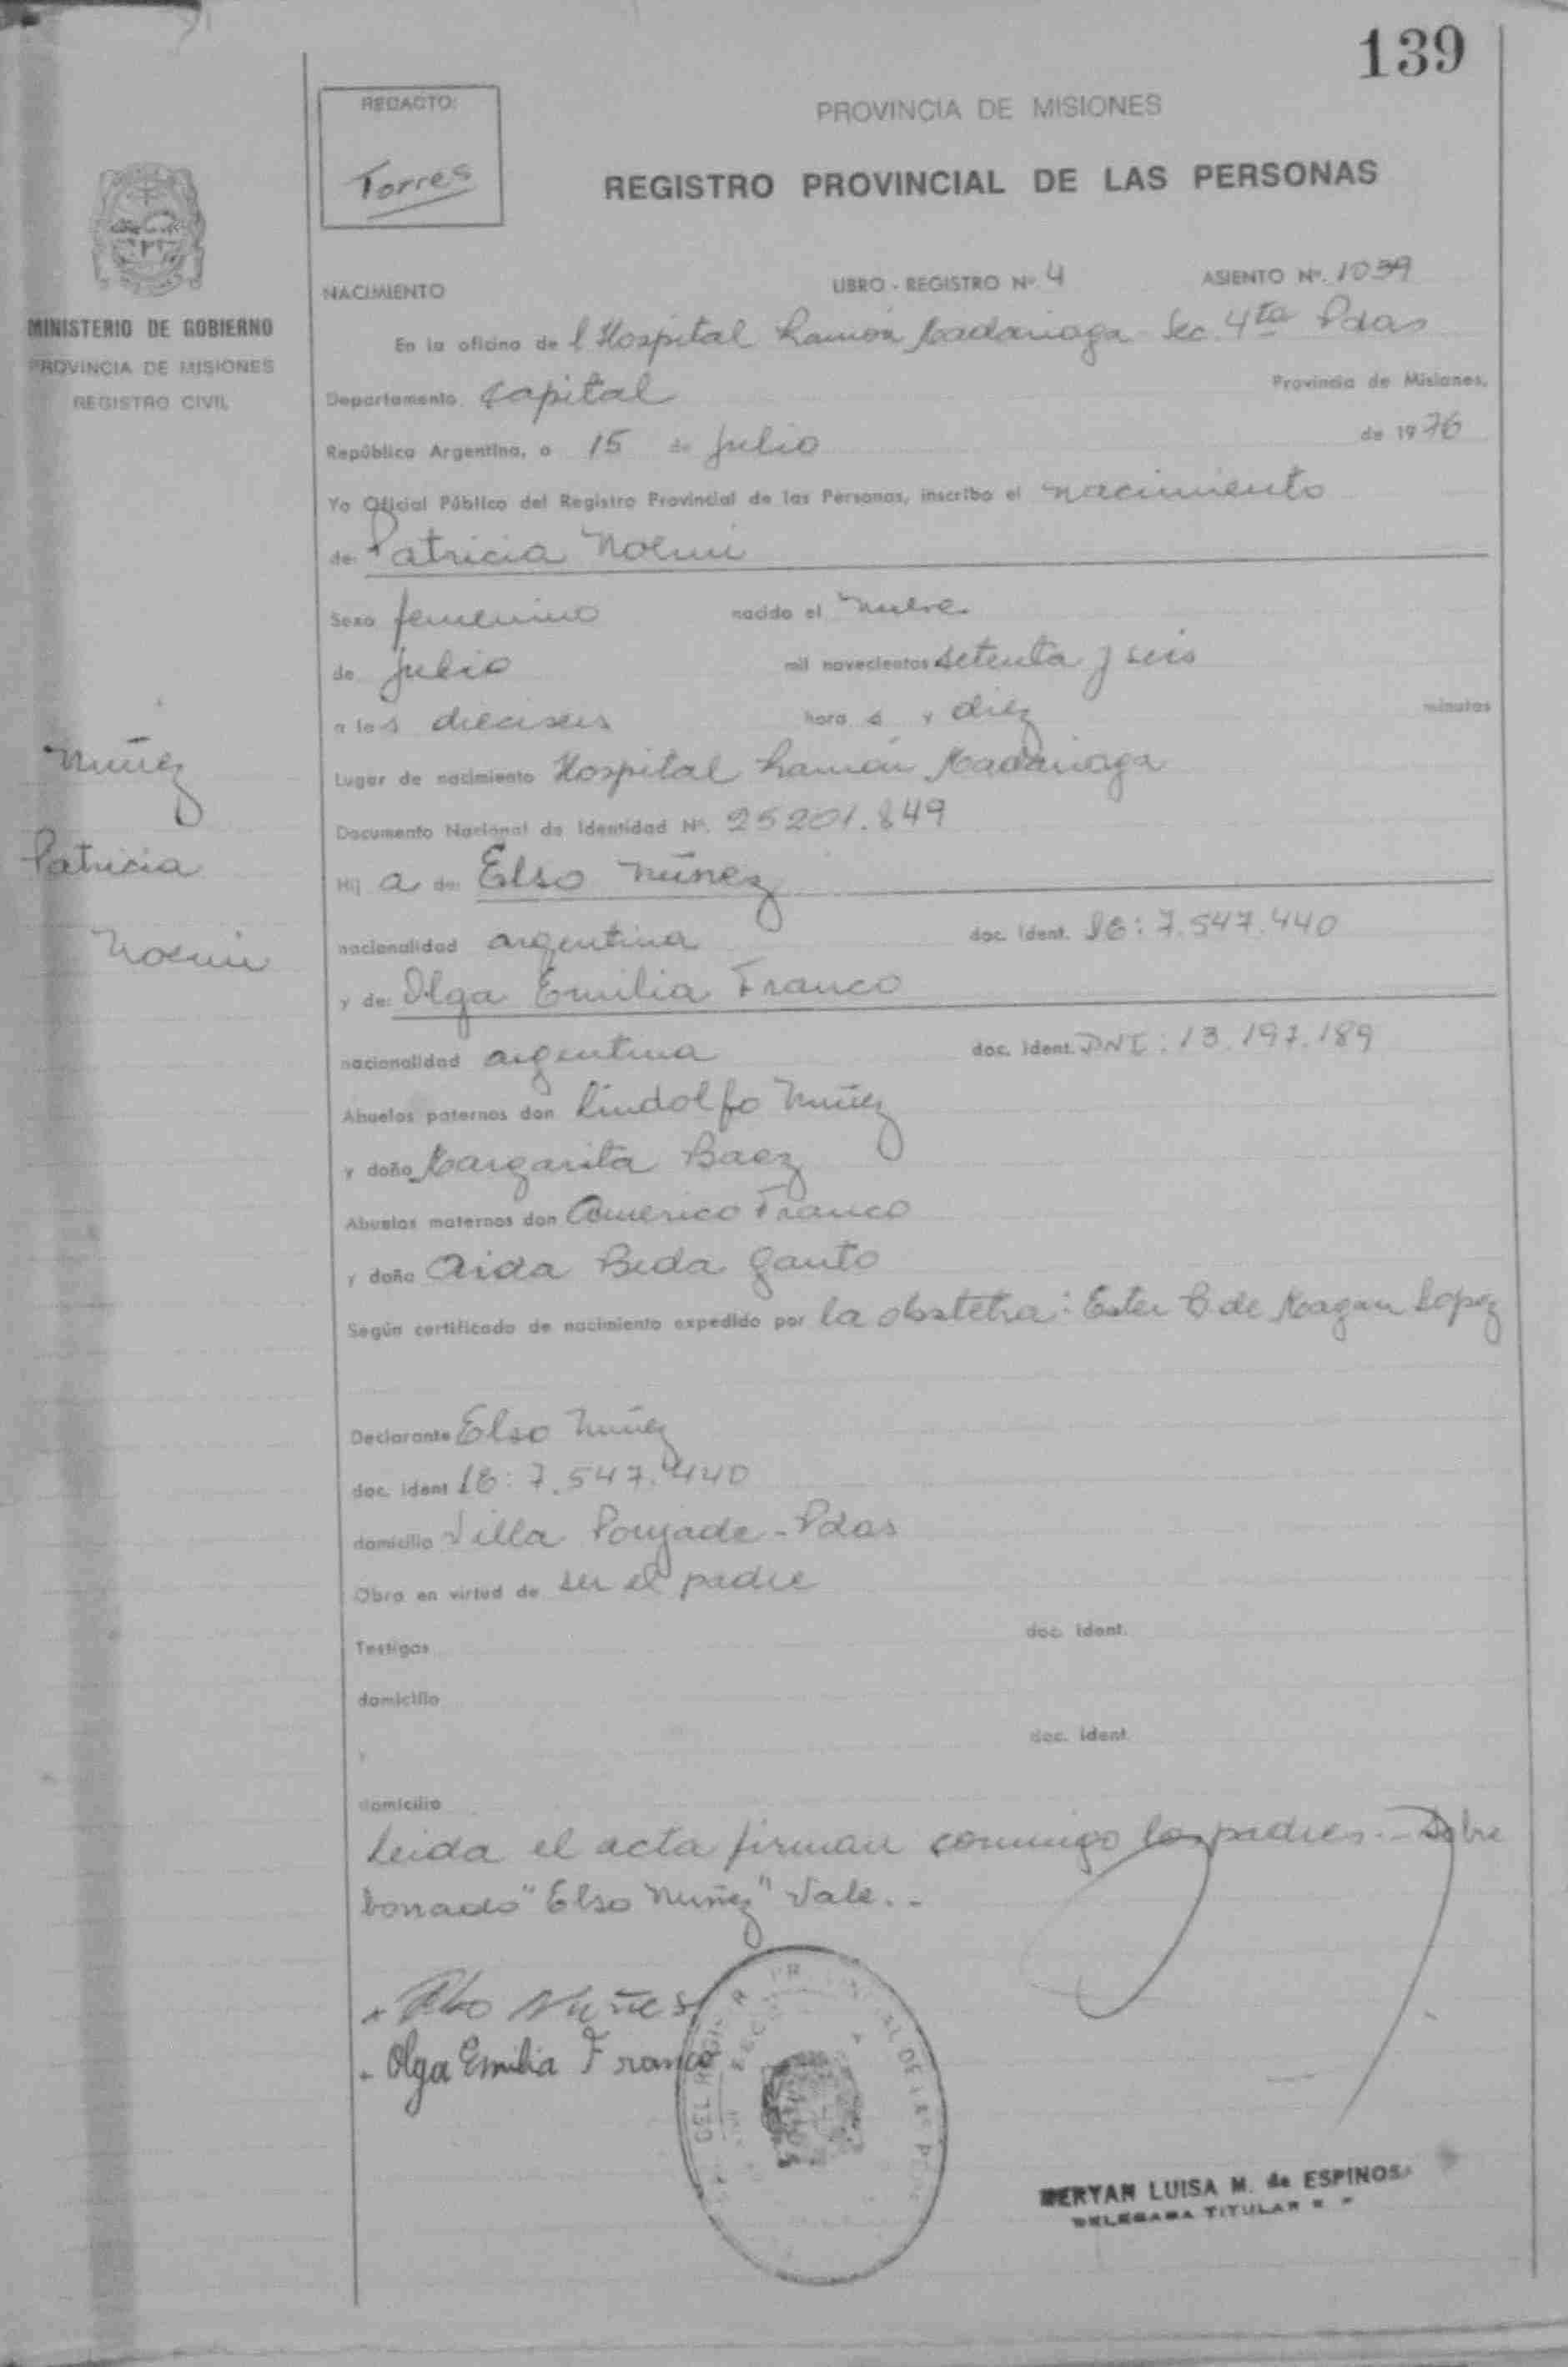 139
REDACTO:
Torres
PROVINCIA DE MISIONES
REGISTRO PROVINCIAL DE LAS PERSONAS
MINISTERIO DE GOBIERNO
PROVINCIA DE MISIONES
REGISTRO CIVIL
NACIMIENTO LIBRO - REGISTRO Nº 4 ASIENTO Nº. 1039
En la oficina de l Hospital Ramón Madariaga Sec. 4ta Pdas
Departamento Capital Provincia de Misiones,
República Argentina, a 15 de Julio de 1976
Yo Oficial Público del Registro Provincial de las Personas, inscribo el nacimiento
de: Patricia Noemi
Sexo femenino nacido el nueve
de Julio mil novecientos setenta y seis
a las dieciseis hora s y diez minutos
Lugar de nacimiento Hospital Ramón Madariaga
Documento Nacional de Identidad Nº. 25201.849
Hij a de: Elso Núñez
nacionalidad argentina doc. ident. LE: 7.547.440
y de: Olga Emilia Franco
nacionalidad argentina doc. ident. DNI: 13.197.189
Abuelos paternos don Lindolfo Núñez
y doña Margarita Baez
Abuelos maternos don Americo Franco
y doña Aida Beda Gauto
Según certificado de nacimiento expedido por la obstetra: Ester B de Magan Lopez
Declarante Elso Núñez
doc. ident LE: 7.547.440
domicilio Villa Poujade - Pdas
Obra en virtud de ser el padre
Testigos doc. ident.
domicilio
y doc. ident.
domicilio
Leida el acta firman conmigo los padres.- Sobre
borrado "Elso Nuñez" Vale.-
Núñez
Patricia
Noemi
Elso Nuñes
Olga Emilia Franco
LUISA M. de ESPINOSA
DELEGADA TITULAR